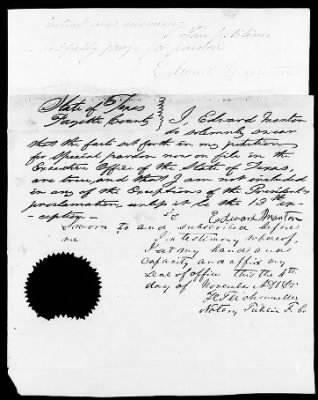 your petitioner
pray for pardon
Edward Manton
State of Texas
Fayette County } I, Edward Manton
do solemnly swear
that the facts set forth in my petition
for special pardon now on file in the
Executive Office of the State of Texas,
are true, and that I am not included
in any of the Exceptions of the President's
proclamation unless it be the 13th ex-
-ception - Edward Manton
Sworn to and subscribed before
me In testimony whereof,
I set my hand and
capacity and affix my
seal of office this the 4th
day of November AD 1865
H Teichmueller
Notary Public F. Co